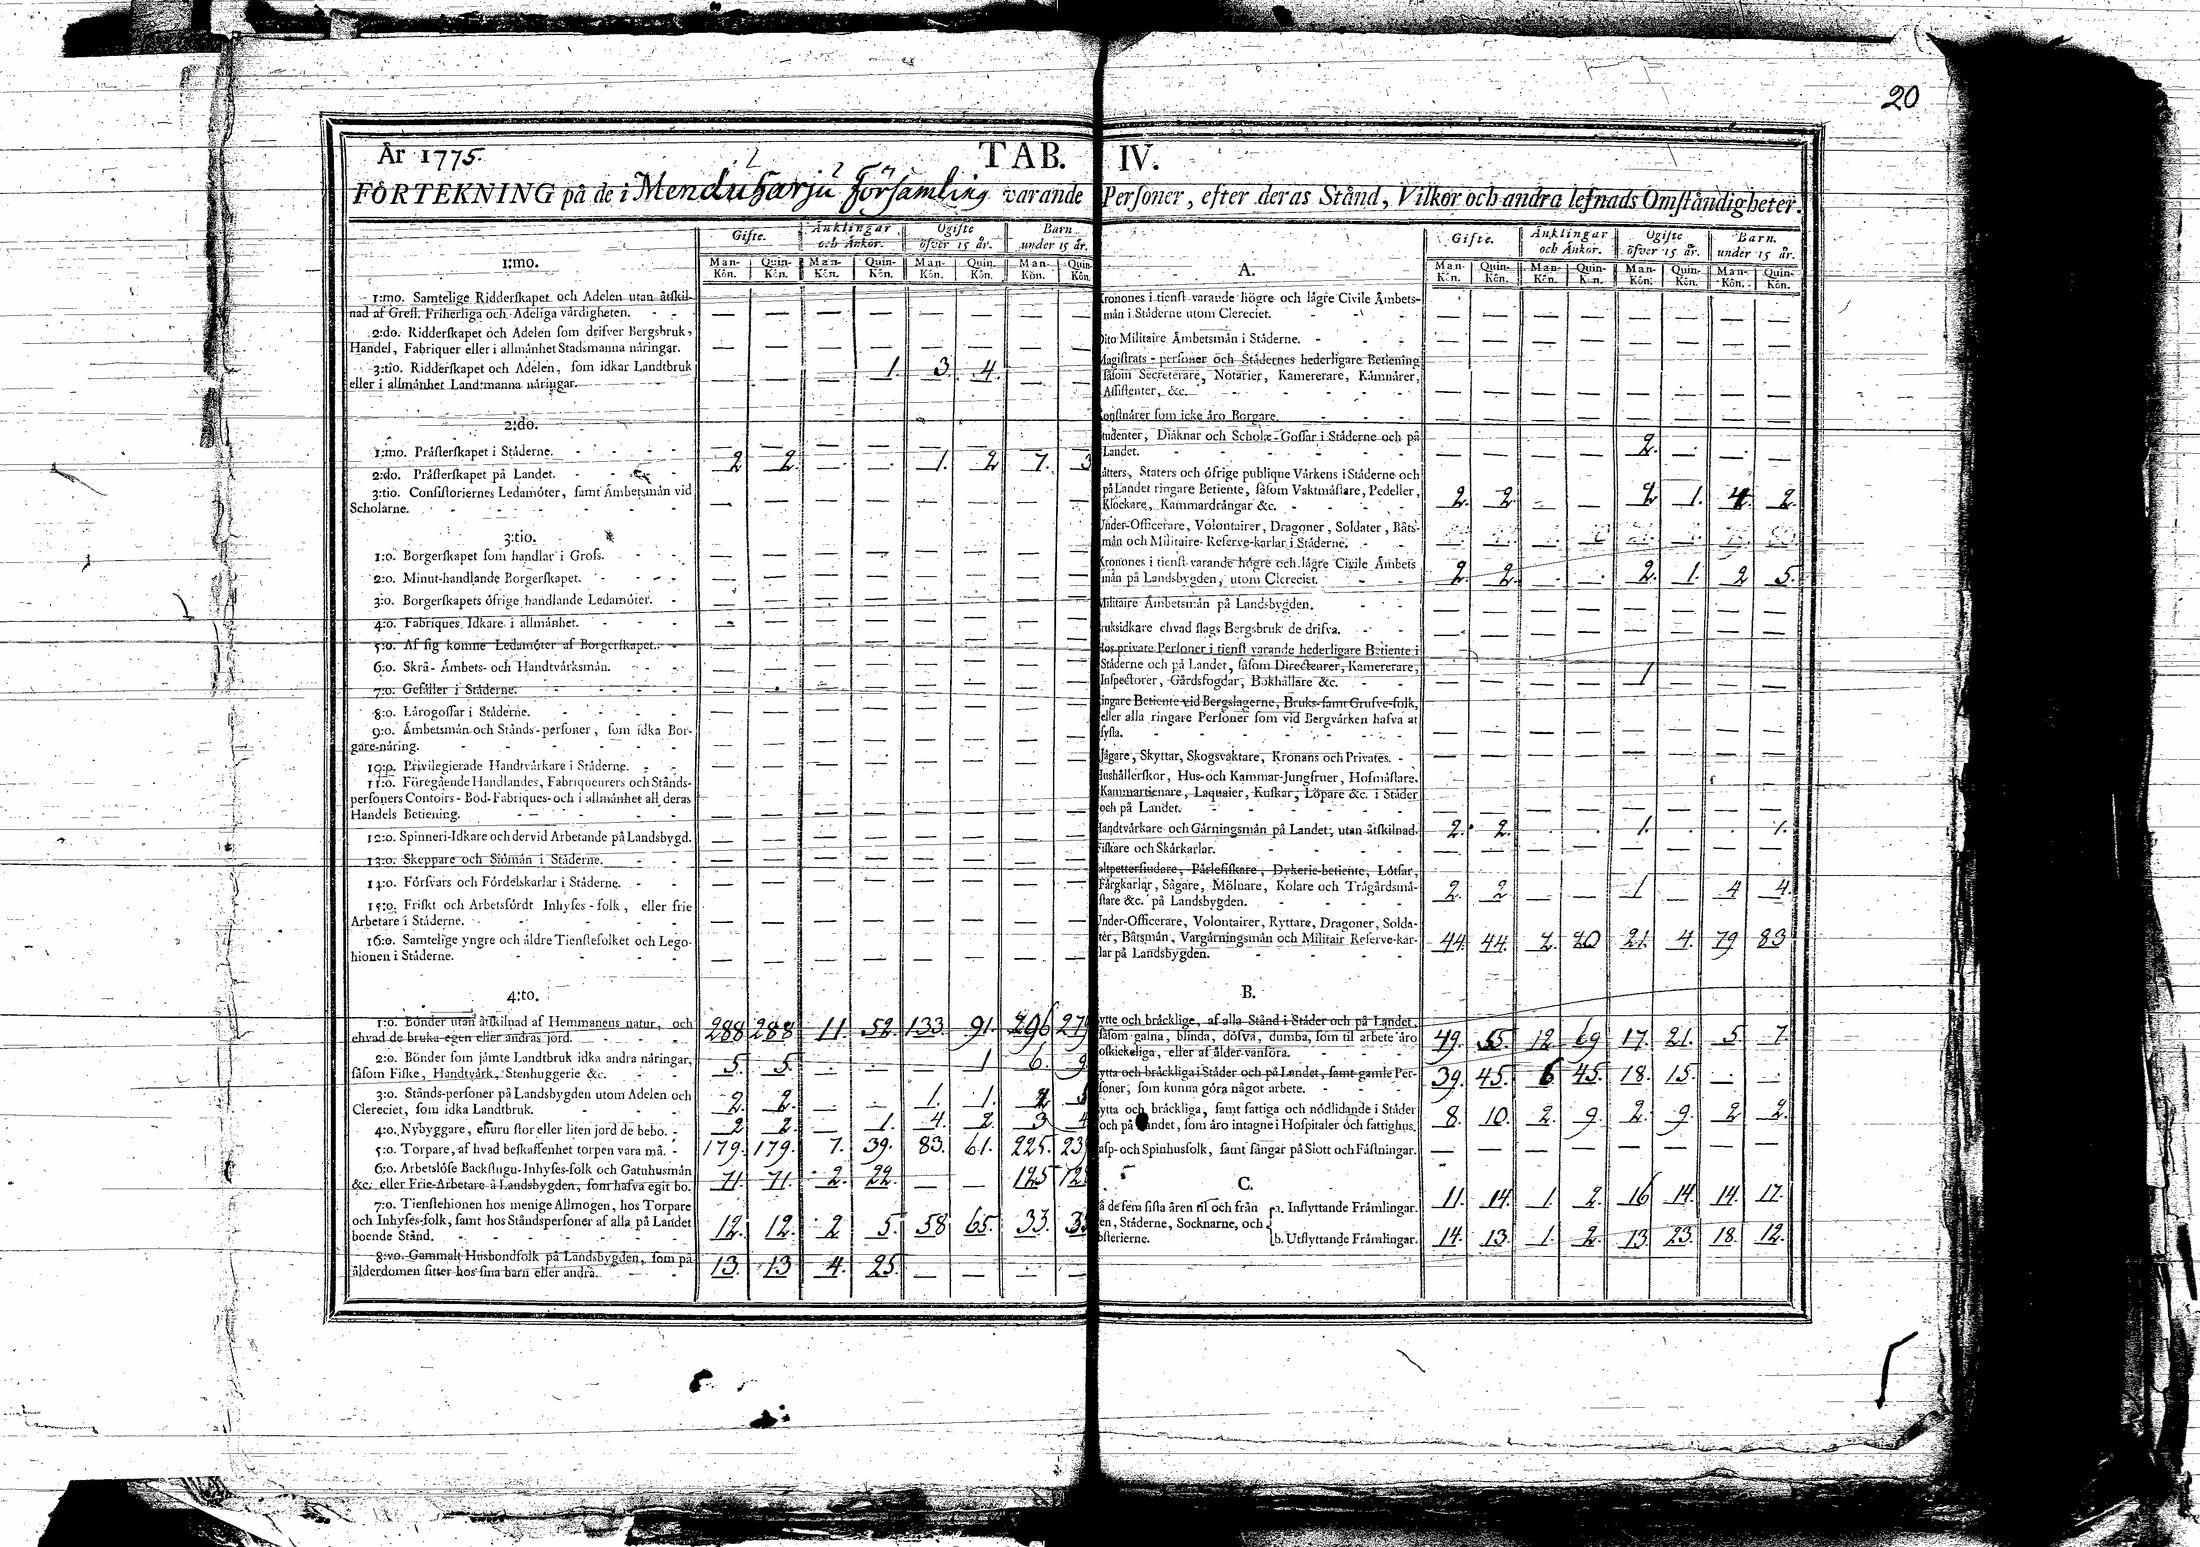 20
År 1775. TAB. IV.
FÖRTEKNING på de i Menduharju Församling varande Personer, efter deras Stånd, Vilkor och andra lefnads Omståndigheter.
Gifte. Änklingar och Änkor. Ogifte öfver 15 år. Barn under 15 år.
Man-Kön. Quin-Kön. Man-Kön. Quin-Kön. Man-Kön. Quin-Kön. Man-Kön. Quin-Kön.
1:mo.
1:mo. Samtelige Ridderskapet och Adelen utan åtskil-
nad af Grefl. Friherliga och Adeliga värdigheten. - - — — — — — — —
2:do. Ridderskapet och Adelen som drifver Bergsbruk,
Handel, Fabriquer eller i allmånhet Stadsmanna näringar. — — — — — — —
3:tio. Ridderskapet och Adelen, som idkar Landtbruk
eller i allmänhet Landtmanna näringar. — — — 1. 3. 4. —
2:do.
1:mo. Prästerskapet i Städerne. - - — — — — — — —
2:do. Prästerskapet på Landet. - - 2 2. - - 1. 2 7. 3
3:tio. Consistoriernes Ledamöter, samt Ämbetsmän vid
Scholarne. - - — — — — — — —
3:tio.
1:o. Borgerskapet som handlar i Gross. - - — — — — — — —
2:o. Minut-handlande Borgerskapet. - - — — — — — — —
3:o. Borgerskapets öfrige handlande Ledamöter. - — — — — — — —
4:o. Fabriques Idkare i allmånhet. - - — — — — — — —
5:o. Af sig komne Ledamöter af Borgerskapet. - - — — — — — — —
6:o. Skrå- Ämbets- och Handtvärksmän. - - — — — — — — —
7:o. Gesäller i Städerne. - - — — — — — — —
8:o. Lärogossar i Städerne. - - — — — — — — —
9:o. Ämbetsmän och Stånds-personer, som idka Bor-
gare-näring. - - — — — — — — —
10:o. Privilegierade Handtvärkare i Städerne. - - — — — — — — —
11:o. Föregående Handlandes, Fabriqueurers och Stånds-
personers Contoirs- Bod- Fabriques- och i allmånhet all deras
Handels Betiening. - - — — — — — — —
12:o. Spinneri-Idkare och dervid Arbetande på Landsbygd. — — — — — — —
13:o. Skeppare och Sjömän i Städerne. - - — — — — — — —
14:o. Försvars och Fördelskarlar i Städerne. - - — — — — — — —
15:o. Friskt och Arbetsfördt Inhyses-folk, eller frie
Arbetare i Städerne. - - — — — — — — —
16:o. Samtelige yngre och äldre Tienstefolket och Lego-
hionen i Städerne. - - — — — — — — —
4:to.
1:o. Bönder utan åtskilnad af Hemmanens natur, och
ehvad de bruka egen eller andras jord. - - 288 288 11. 52 133. 91. 296 279
2:o. Bönder som jämte Landtbruk idka andra näringar,
såsom Fiske, Handtvärk, Stenhuggerie &c. - - 5. 5. — — — 1 6. 9
3:o. Stånds-personer på Landsbygden utom Adelen och
Clereciet, som idka Landtbruk. - - 2. 2. - - 1. 1. 2
4:o. Nybyggare, ehuru stor eller liten jord de bebo. - 2 2. — 1. 4. 2. 3 4
5:o. Torpare, af hvad beskaffenhet torpen vara må. - 179. 179. 7. 39. 83. 61. 225. 23
6:o. Arbetslöse Backstugu-Inhyses-folk och Gatuhusmän
&c. eller Frie-Arbetare å Landsbygden, som hafva egit bo. 71. 71. 2. 22. — — 125 12
7:o. Tienstehionen hos menige Allmogen, hos Torpare
och Inhyses-folk, samt hos Ståndspersoner af alla på Landet
boende Stånd. - - 12. 12. 2 5. 58 65. 33. 3
8:vo. Gammalt Husbondfolk på Landsbygden, som på
ålderdomen sitter hos sina barn eller andra. - - 13. 13 4. 25. — — — —
Gifte. Änklingar och Änkor. Ogifte öfver 15 år. Barn. under 15 år.
Man-Kön. Quin-Kön. Man-Kön. Quin-Kön. Man-Kön. Quin-Kön. Man-Kön. Quin-Kön.
A.
Kronones i tienst varande högre och lägre Civile Ämbets-
män i Städerne utom Clereciet. - - — — — — — — — —
Dito Militaire Ämbetsmän i Städerne. - - — — — — — — — —
Magistrats-personer och Städernes hederligare Betiening
såsom Secreterare, Notarier, Kamererare, Kämnärer,
Assistenter, &c. - - — — — — — — — —
Konstnärer som icke äro Borgare. - - — — — — — — — —
Studenter, Diäknar och Scholæ-Gossar i Städerne och på
Landet. - - — — — — 2. - - —
Staters och öfrige publique Värkens i Städerne och
på Landet ringare Betiente, såsom Vaktmästare, Pedeller,
Klockare, Kammardrängar &c. - - 2. 2. — — 2 1. 4. 2.
Under-Officerare, Volontairer, Dragoner, Soldater, Båts-
män och Militaire-Reserve-karlar i Städerne. -
Kronones i tienst varande högre och lägre Civile Ämbets
män på Landsbygden, utom Clereciet. - 2. 2. - - 2. 1. 2 5.
Militaire Ämbetsmän på Landsbygden. - - — — — — — — — —
Bruksidkare ehvad slags Bergsbruk de drifva. - - — — — — — — — —
Hos private Personer i tienst varande hederligare Betiente i
Städerne och på Landet, såsom Directeurer, Kamererare,
Inspectorer, Gårdsfogdar, Bokhållare &c. - - — — — — 1 — — —
ringare Betiente vid Bergslagerne, Bruks- samt Grufve-folk,
eller alla ringare Personer som vid Bergvärken hafva at
sysla. - - — — — — — — — —
Jägare, Skyttar, Skogsvaktare, Kronans och Privates. - — — — — — — — —
Hushållerskor, Hus- och Kammar-Jungfruer, Hofmästare,
Kammartienare, Laquaier, Kuskar, Löpare &c. i Städer
och på Landet. - - — — — — — — — —
Handtvärkare och Gärningsmän på Landet, utan åtskilnad. 2. 2. - - 1. - - 1.
Fiskare och Skärkarlar. - - — — — — — — — —
Saltpettersiudare, Pärlefiskare, Dykerie-betiente, Lotsar,
Färgkarlar, Sågare, Mölnare, Kolare och Trägårdsmä-
stare &c. på Landsbygden. - - 2. 2 — — 1 4 4.
Under-Officerare, Volontairer, Ryttare, Dragoner, Solda-
ter, Båtsmän, Vargärningsmän och Militair Reserve-kar-
lar på Landsbygden. - - 44. 44. 2. 20 21. 4. 79 83
B.
Lytte och bräcklige, af alla Stånd i Städer och på Landet,
såsom galna, blinda, döfva, dumba, som til arbete äro
oskickeliga, eller af ålder vanföra. - - 49. 55. 12. 69 17. 21. 5. 7.
Lytta och bräckliga i Städer och på Landet, samt gamle Per-
soner, som kunna göra något arbete. - - 39. 45. 6. 45. 18. 15. — —
Lytta och bräckliga, samt fattiga och nödlidande i Städer
och på Landet, som äro intagne i Hospitaler och fattighus. 8. 10. 2. 9. 2. 9. 2 2.
Rasp- och Spinhusfolk, samt fångar på Slott och Fästningar. — — — — — — — —
C.
På de fem sista åren til och från a. Inflyttande Främlingar. 11. 14. 1. 2. 16 14. 14. 17.
Städerne, Socknarne, och
b. Utflyttande Främlingar. 14. 13. 1. 2. 13 23. 18. 12.